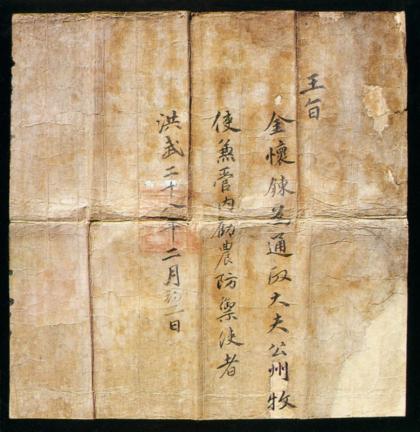 王旨
金懷鍊爲通政大夫公州牧
使兼管內勸農防禦使者
洪武二十八年二月初 日